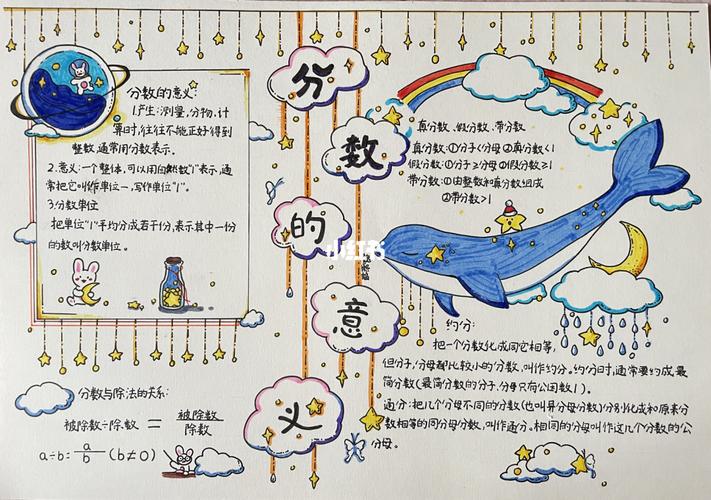 分
数
的
意
义
分数的意义:
1.产生:测量,分物,计
算时,往往不能正好得到
整数,通常用分数表示。
2.意义:一个整体,可以用自然数"1"表示,通
常把它叫作单位一,写作单位"1"。
3.分数单位
把单位"1"平均分成若干份,表示其中一份
的数叫分数单位。
真分数、假分数、带分数
真分数:①分子<分母②真分数<1
假分数:①分子≥分母②假分数≥1
带分数:①由整数和真分数组成
②带分数>1
小红书
约分:
把一个分数化成同它相等,
但分子,分母都比较小的分数,叫作约分。约分时,通常要约成最
简分数(最简分数的分子,分母只有公因数1)。
通分:把几个分母不同的分数(也叫异分母分数)分别化成和原来分
数相等的同分母分数,叫作通分。相同的分母叫作这几个分数的公
分母。
分数与除法的关系:
被除数÷除数 = 被除数/除数
a÷b= a/b (b≠0)